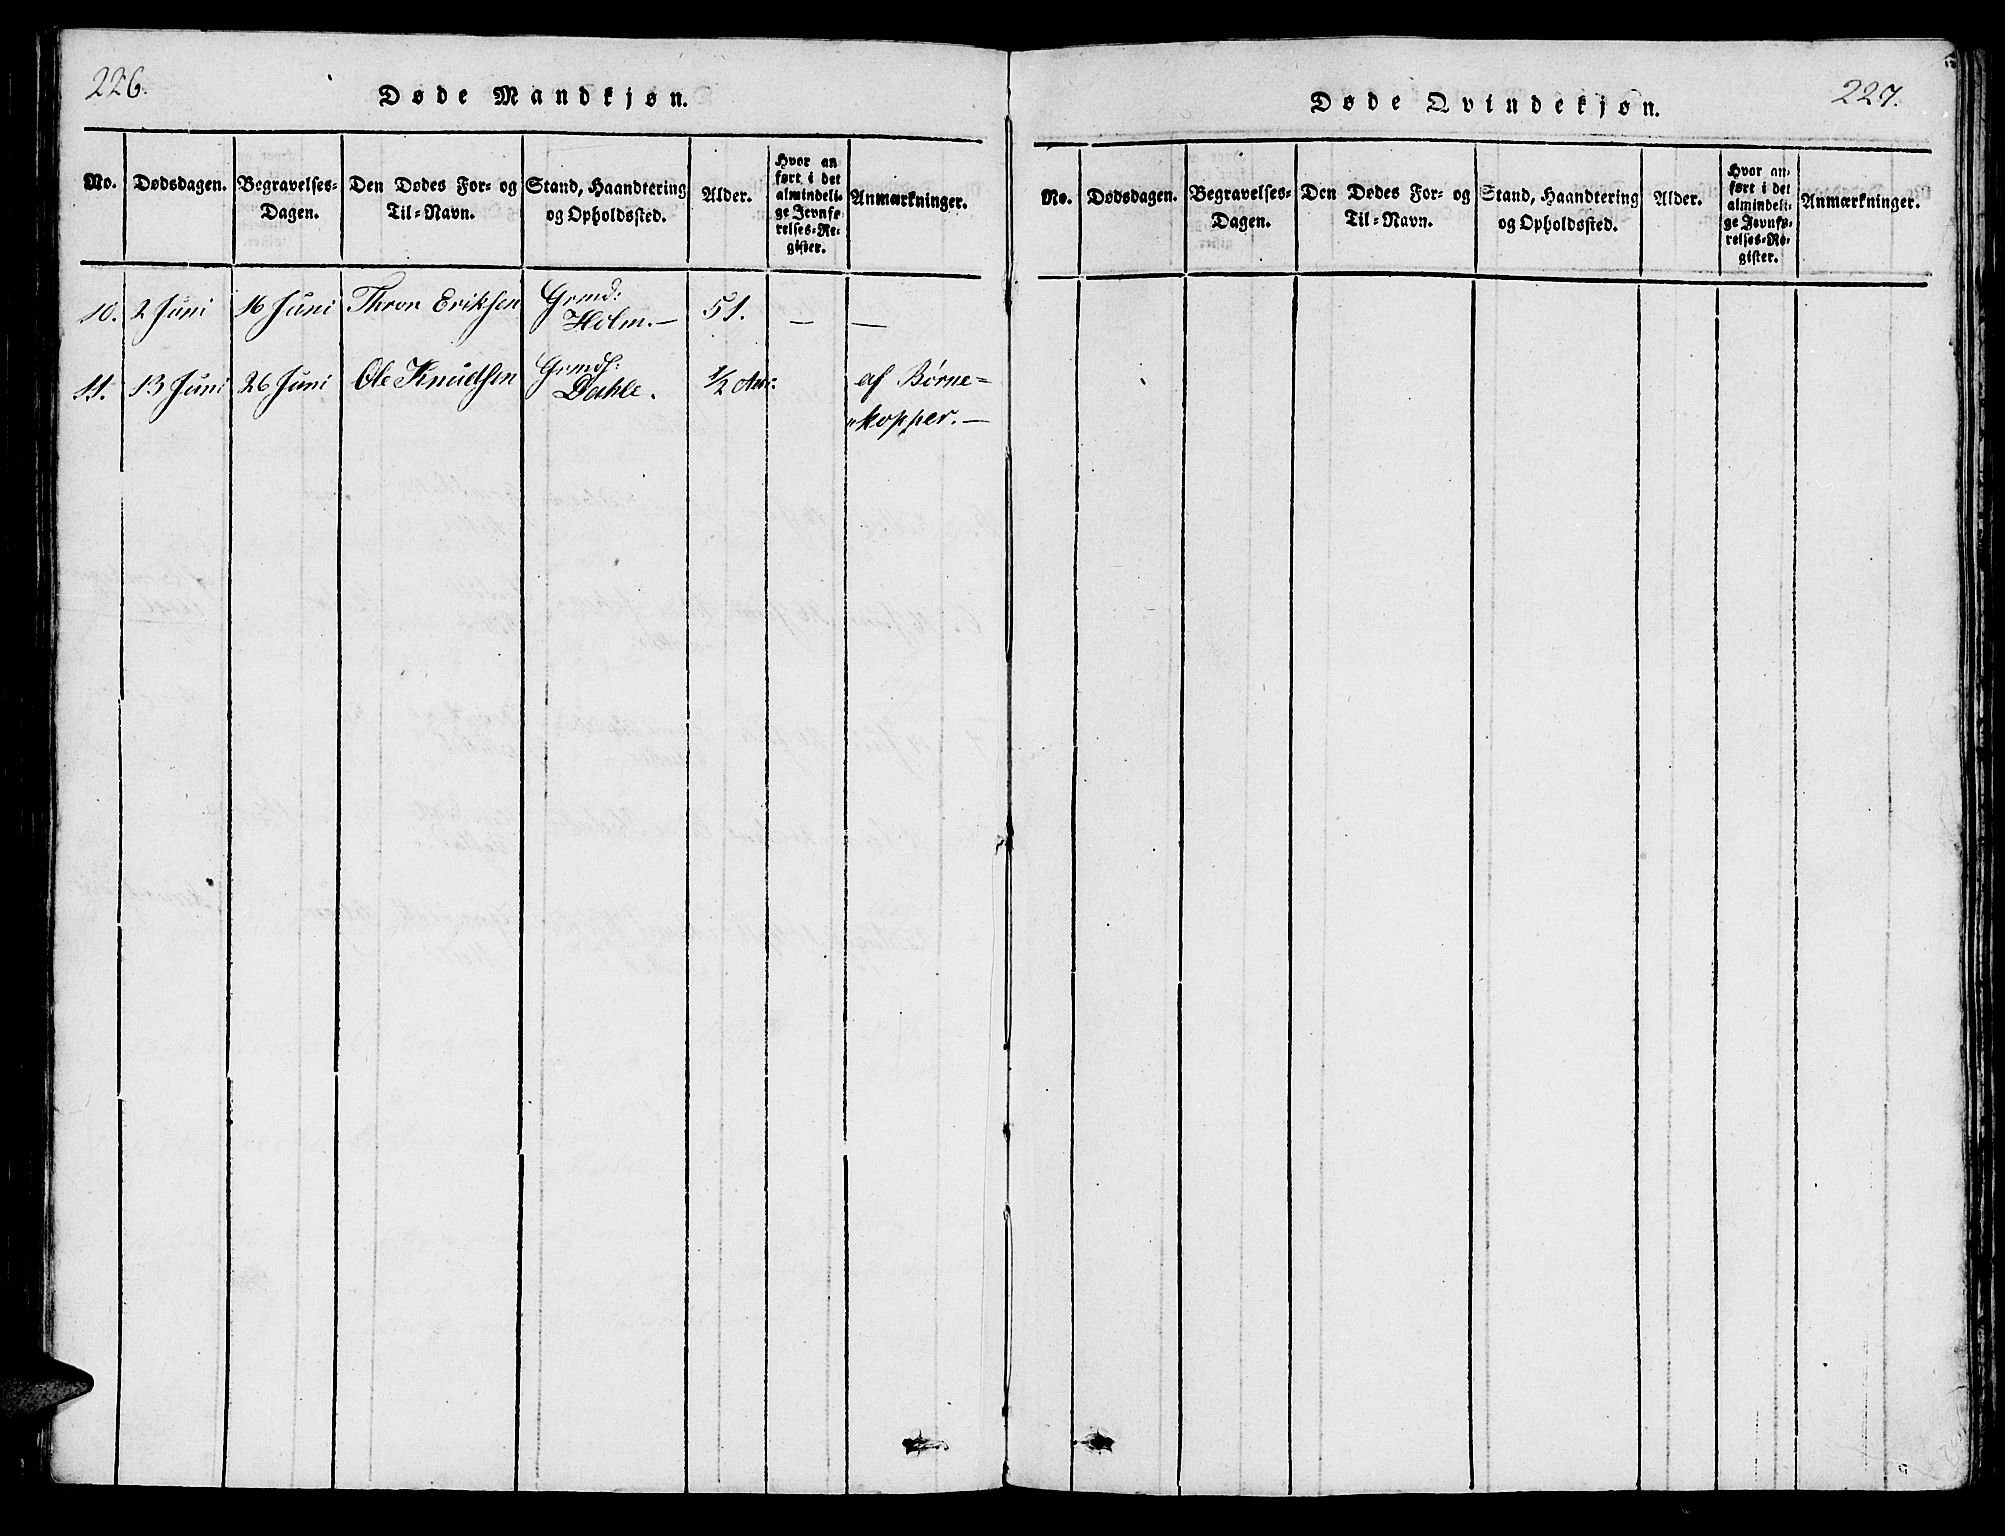 226.
Døde Mandkjøn.
No.
Dødsdagen.
Begravelses-
Dagen.
Den Dødes For- og
Til-Navn.
Stand, Haandtering
og Opholdssted.
Alder.
Hvor an
ført i det
almindeli-
ge Jevnfø-
relses-Re-
gister.
Anmærkninger.
10. 2 Juni 16 Juni Thron Eriksen Grmd: 51. — —
Holm. —
11. 13 Juni 26 Juni Ole Knudsen Grmds: ½ Aar: af Børne-
Dahle.
kopper. —
227.
Døde Qvindekjøn.
No.
Dødsdagen.
Begravelses-
Dagen.
Den Dødes For- og
Til-Navn.
Stand, Haandtering
og Opholdssted.
Alder.
Hvor an-
ført i det
almindeli-
ge Jevnfø-
relses-Re-
gister.
Anmærkninger.